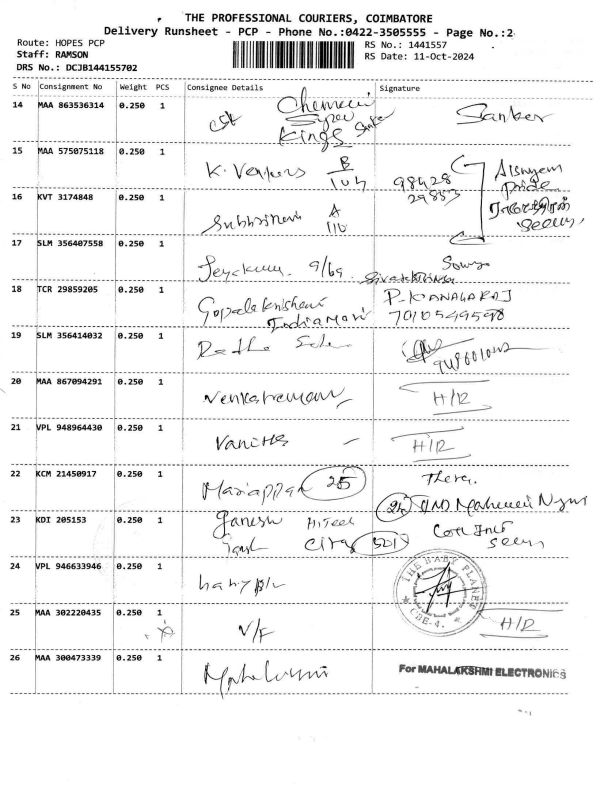 THE PROFESSIONAL COURIERS, COIMBATORE
Delivery Runsheet - PCP - Phone No.:0422-3505555 - Page No.:2
Route: HOPES PCP
Staff: RAMSON
DRS No.: DCJB144155702
RS No.: 1441557
RS Date: 11-Oct-2024
S No Consignment No Weight PCS Consignee Details Signature
14 MAA 863536314 0.250 1 Kings Sanker
15 MAA 575075118 0.250 1 K. B 104 98428 29853
16 KVT 3174848 0.250 1 A 110
17 SLM 356407558 0.250 1 9/69
18 TCR 29859205 0.250 1 Gopalakrishnan P. KANAGARAJ
7010549598
19 SLM 356414032 0.250 1 Radha
20 MAA 867094291 0.250 1 Venkatraman H/R
21 VPL 948964430 0.250 1 Vanitha H/R
22 KCM 21450917 0.250 1 Mariappan 25
23 KDI 205153 0.250 1 Ganesh HiTech
City 501
24 VPL 946633946 0.250 1 THE BABY PLANET CBE-4.
25 MAA 302220435 0.250 1 V/F H/R
26 MAA 300473339 0.250 1 Mahalaxmi For MAHALAKSHMI ELECTRONICS